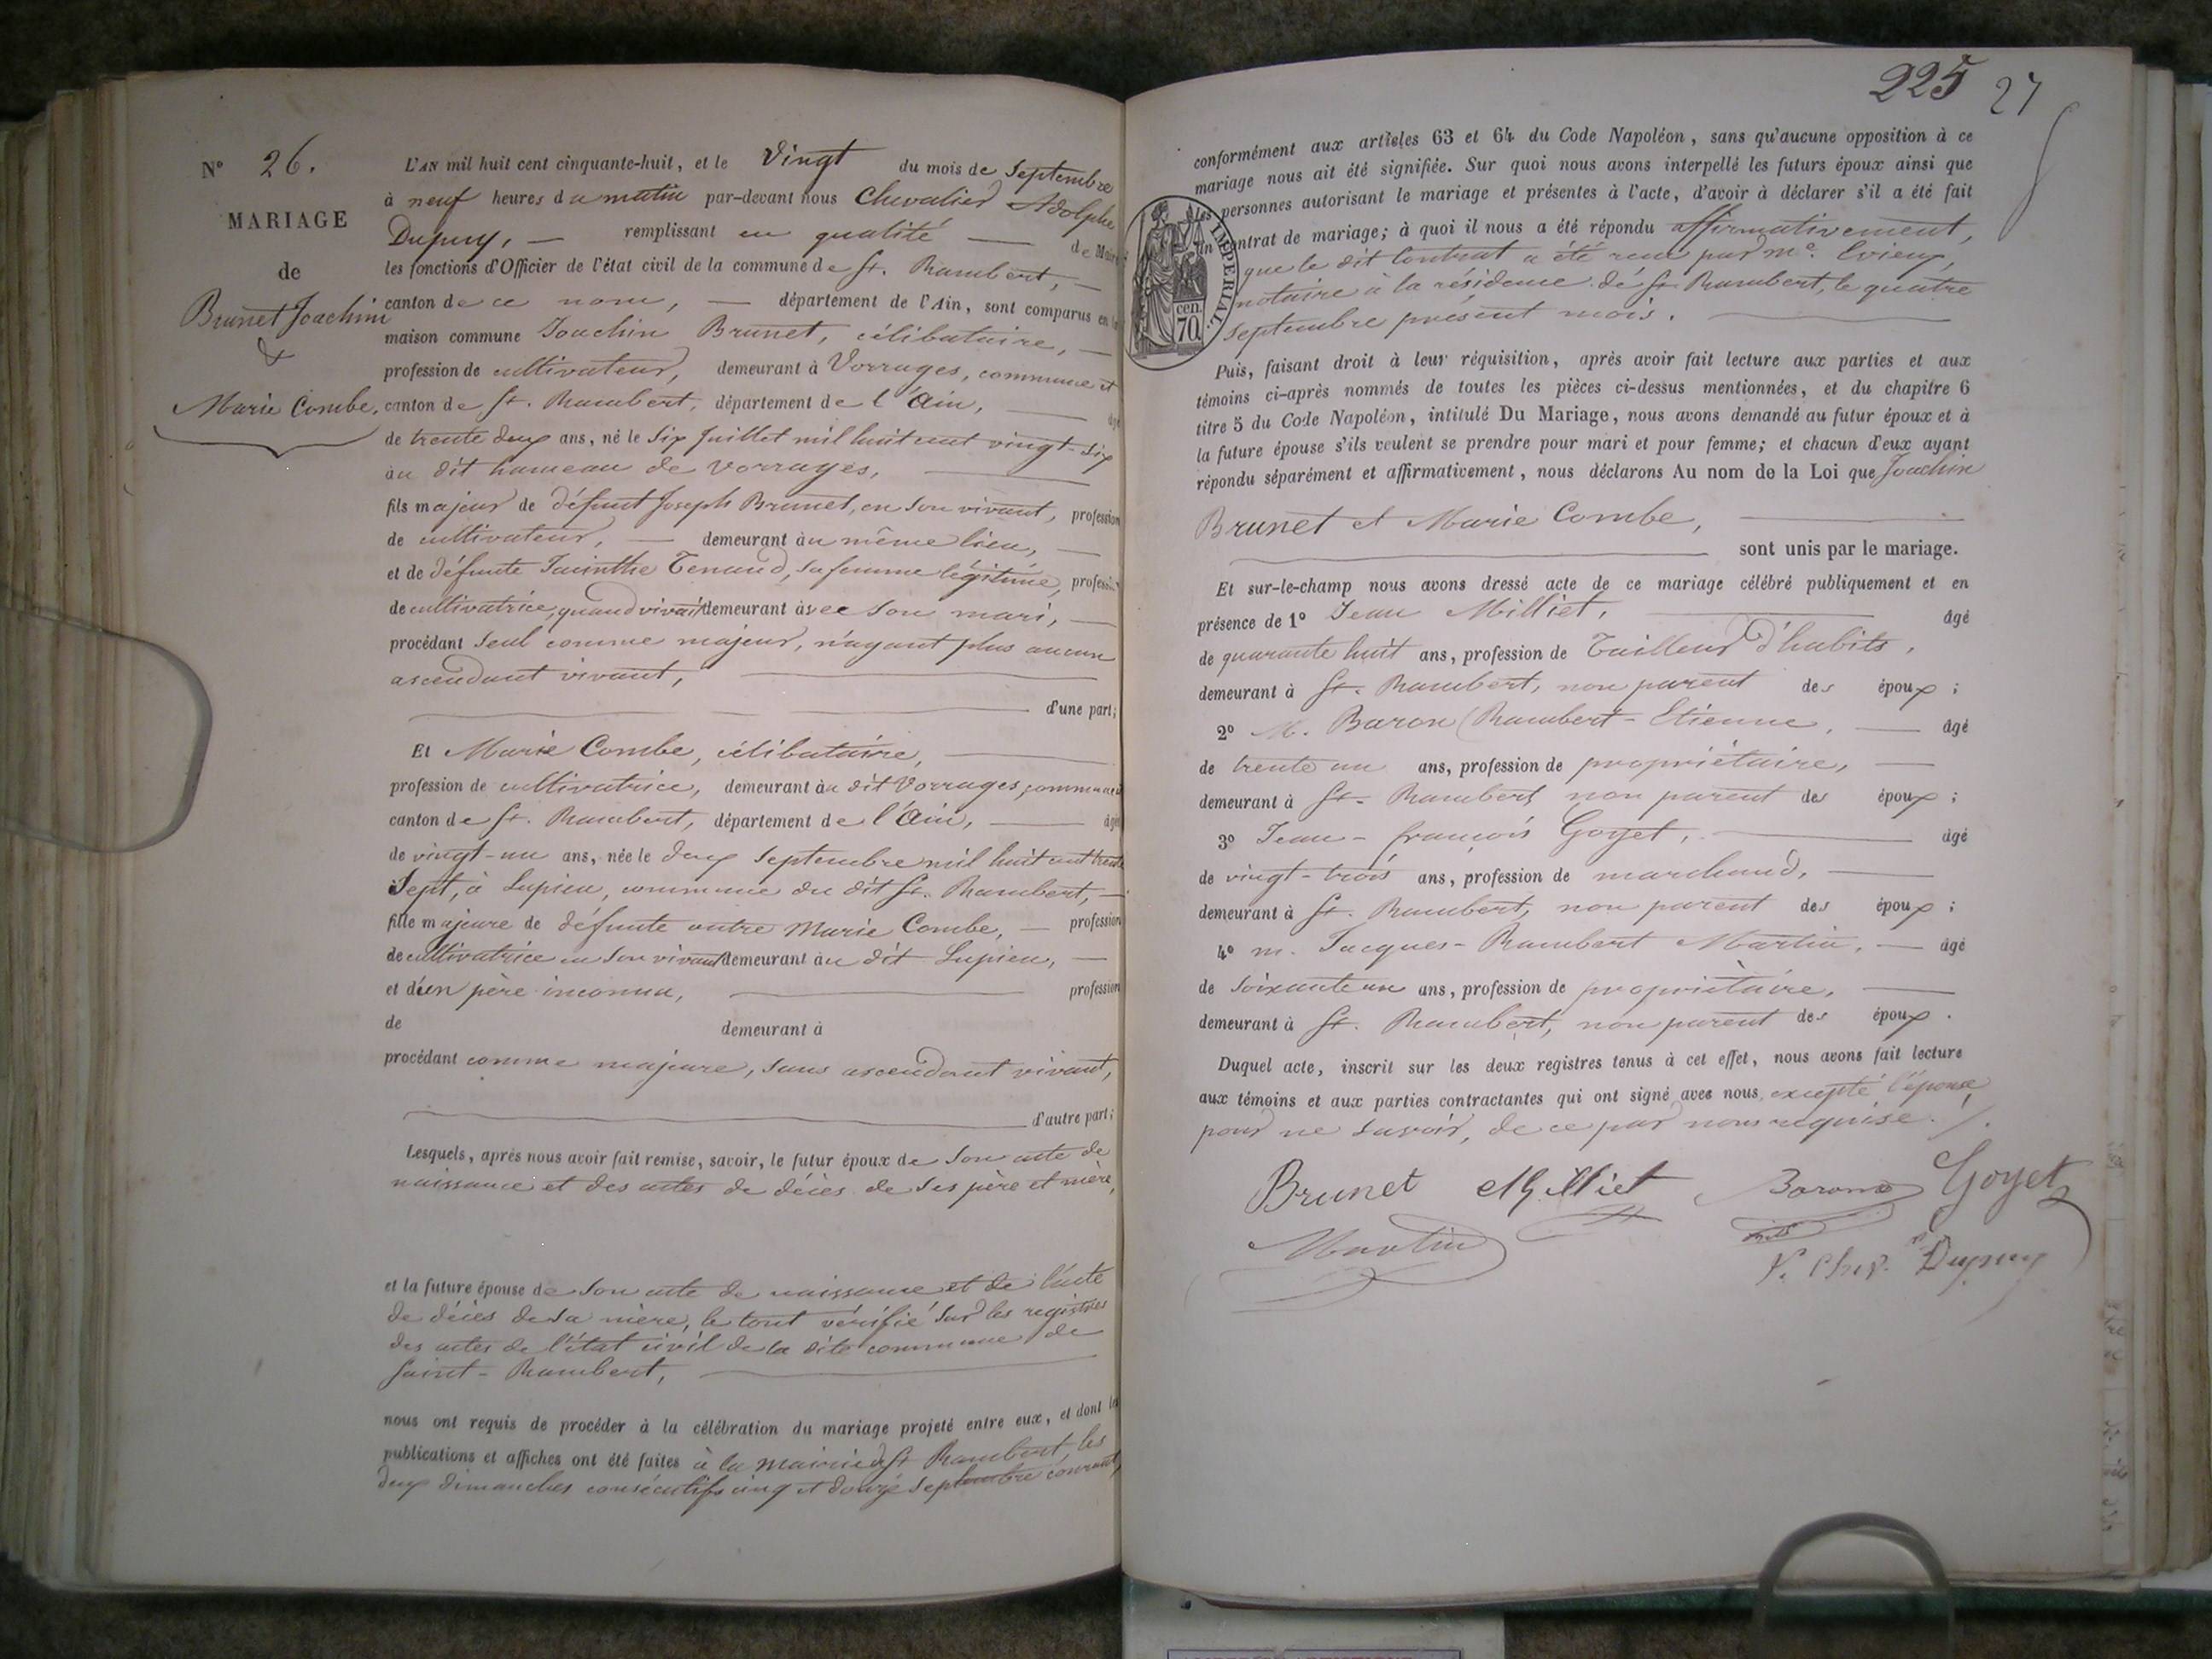 N° 26.
MARIAGE
de
Brunet Joachim
&
Marie Combe,
L'AN mil huit cent cinquante-huit, et le Vingt du mois de Septembre
à neuf heures du matin par-devant nous Chevalier Adolphe
Dupuy, — remplissant en qualité — de Maire
les fonctions d'Officier de l'état civil de la commune de St. Rambert, —
canton de ce nom, — département de l'Ain, sont comparus en la
maison commune Joachin Brunet, célibataire, —
profession de cultivateur, demeurant à Vorrages, commune et
canton de St. Rambert, département de l'Ain, — âgé
de trente deux ans, né le Six Juillet mil huit cent vingt-Six
au dit hameau de Vorrages, —
fils majeur de défunt Joseph Brunet, en son vivant, profession
de cultivateur, — demeurant au même lieu, —
et de défunte Jacinthe Tenand, sa femme légitime, profession
de cultivatrice, quand vivait demeurant avec son mari, —
procédant Seul comme majeur, n'ayant plus aucun
ascendant vivant, —
d'une part;
Et Marie Combe, célibataire, —
profession de cultivatrice, demeurant au dit Vorrages, commune et
canton de St. Rambert, département de l'Ain, — âgée
de vingt-un ans, née le deux Septembre mil huit cent trente
Sept, à Lupieu, commune du dit St. Rambert, —
fille majeure de défunte autre Marie Combe, — profession
de cultivatrice en son vivant demeurant au dit Lupieu, —
et d'un père inconnu, — profession
de demeurant à
procédant comme majeure, sans ascendant vivant,
d'autre part;
Lesquels, après nous avoir fait remise, savoir, le futur époux de Son acte de
naissance et des actes de décès de ses père et mère,
et la future épouse de Son acte de naissance et de l'acte
de décès de sa mère, le tout vérifié sur les registres
des actes de l'état civil de la dite commune de
Saint-Rambert, —
nous ont requis de procéder à la célébration du mariage projeté entre eux, et dont les
publications et affiches ont été faites à la mairie de St Rambert, les
deux dimanches consécutifs cinq et douze Septembre courant,
225 27
conformément aux articles 63 et 64 du Code Napoléon, sans qu'aucune opposition à ce
mariage nous ait été signifiée. Sur quoi nous avons interpellé les futurs époux ainsi que
les personnes autorisant le mariage et présentes à l'acte, d'avoir à déclarer s'il a été fait
un contrat de mariage; à quoi il nous a été répondu affirmativement,
que le dit Contrat a été reçu par Me. Evieux,
notaire à la résidence de St. Rambert, le quatre
septembre présent mois. —
IMPERIAL.
cen.
70
Puis, faisant droit à leur réquisition, après avoir fait lecture aux parties et aux
témoins ci-après nommés de toutes les pièces ci-dessus mentionnées, et du chapitre 6
titre 5 du Code Napoléon, intitulé Du Mariage, nous avons demandé au futur époux et à
la future épouse s'ils veulent se prendre pour mari et pour femme; et chacun d'eux ayant
répondu séparément et affirmativement, nous déclarons Au nom de la Loi que Joachin
Brunet et Marie Combe, —
sont unis par le mariage.
Et sur-le-champ nous avons dressé acte de ce mariage célébré publiquement et en
présence de 1° Jean Milliet, — âgé
de quarante huit ans, profession de Tailleur d'habits,
demeurant à St. Rambert, non parent des époux;
2° M. Baron (Rambert-Etienne, — âgé
de trente un ans, profession de propriétaire, —
demeurant à St. Rambert non parent des époux;
3° Jean-françois Goyet, — âgé
de vingt-trois ans, profession de marchand, —
demeurant à St. Rambert, non parent des époux;
4° m. Jacques-Rambert Martin, — âgé
de soixante un ans, profession de propriétaire, —
demeurant à St. Rambert, non parent des époux.
Duquel acte, inscrit sur les deux registres tenus à cet effet, nous avons fait lecture
aux témoins et aux parties contractantes qui ont signé avec nous, excepté l'épouse
pour ne savoir, de ce par nous requise./.
Brunet Milliet Baron Goyet
fils
Martin
Chev. Dupuy